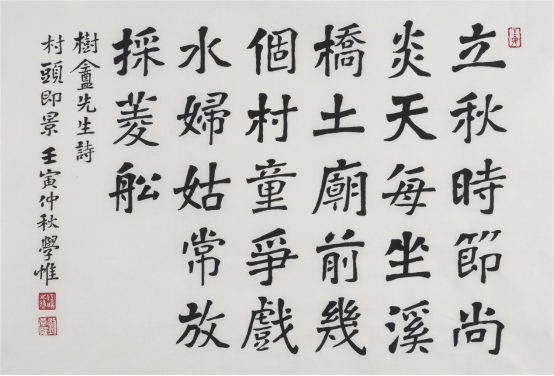 立秋時節尚
炎天每坐溪
橋土廟前幾
個村童爭戲
水婦姑常放
採菱舩
樹盦先生詩
村頭即景 壬寅仲秋學惟